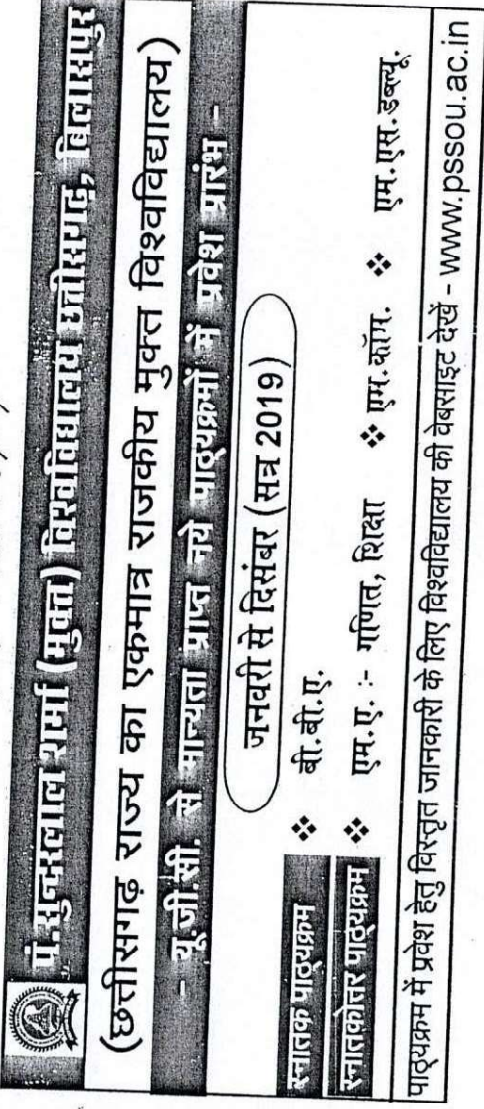 पं.सुन्दरलाल शर्मा (मुक्त) विश्वविद्यालय छत्तीसगढ़, बिलासपुर
(छत्तीसगढ़ राज्य का एकमात्र राजकीय मुक्त विश्वविद्यालय)
- यू.जी.सी. से मान्यता प्राप्त नये पाठ्यक्रमों में प्रवेश प्रारंभ -
जनवरी से दिसंबर (सत्र 2019)
स्नातक पाठ्यक्रम ❖ बी.बी.ए.
स्नातकोत्तर पाठ्यक्रम ❖ एम.ए. :- गणित, शिक्षा ❖ एम.कॉम. ❖ एम.एस.डब्ल्यू.
पाठ्यक्रम में प्रवेश हेतु विस्तृत जानकारी के लिए विश्वविद्यालय की वेबसाइट देखें - www.pssou.ac.in